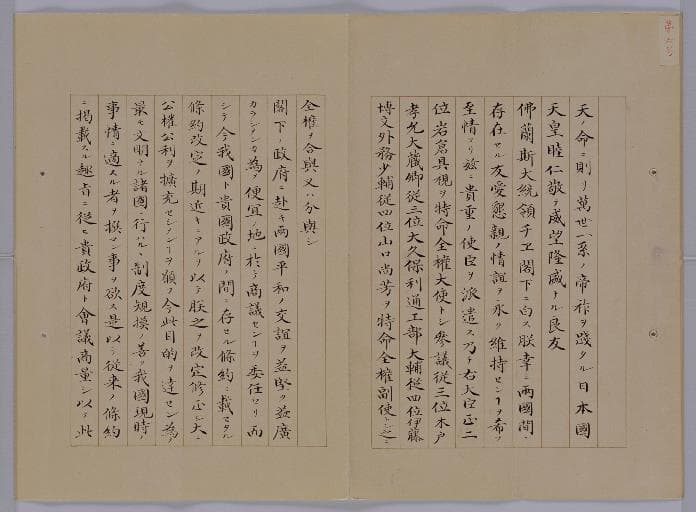 天ノ命ニ則リ萬世一系ノ帝祚ヲ踐タル日本國
天皇睦仁敬テ威望隆盛ナル良友
佛蘭斯大統領チエ閣下ニ白ス朕幸ニ兩國間ニ
存在セル友愛懇親ノ情誼ヲ永ク維持センヿヲ希フ
至情ヨリ茲ニ貴重ノ使臣ヲ派遣ス乃チ右大臣正二
位岩倉具視ヲ特命全權大使トシ參議從三位木戸
孝允大藏卿從三位大久保利通工部大輔從四位伊藤
博文外務少輔從四位山口尚芳ヲ特命全權副使トシ之ニ
全權ヲ合與又ハ分與シ
閣下ノ政府ニ赴キ兩國平和ノ交誼ヲ益堅ク益廣
カラシメンカ為メ便宜ノ地ニ於テ商議センヿヲ委任セリ而
シテ今我國ト貴國政府ノ間ニ存セル條約ニ載セタル
條約改定ノ期近キニアルヲ以テ朕之ヲ改定修正シ大ニ
公權公利ヲ擴充セシメンヿヲ願フ今此目的ヲ達セン為メ
最モ文明ナル諸國ニ行ハルヽ制度規摸ノ善ク我國現時ノ
事情ニ適スル者ヲ撰マン事ヲ欲ス是以テ從来ノ條約
ニ掲載スル趣旨ニ從ヒ貴政府ト會議商量シ以テ此